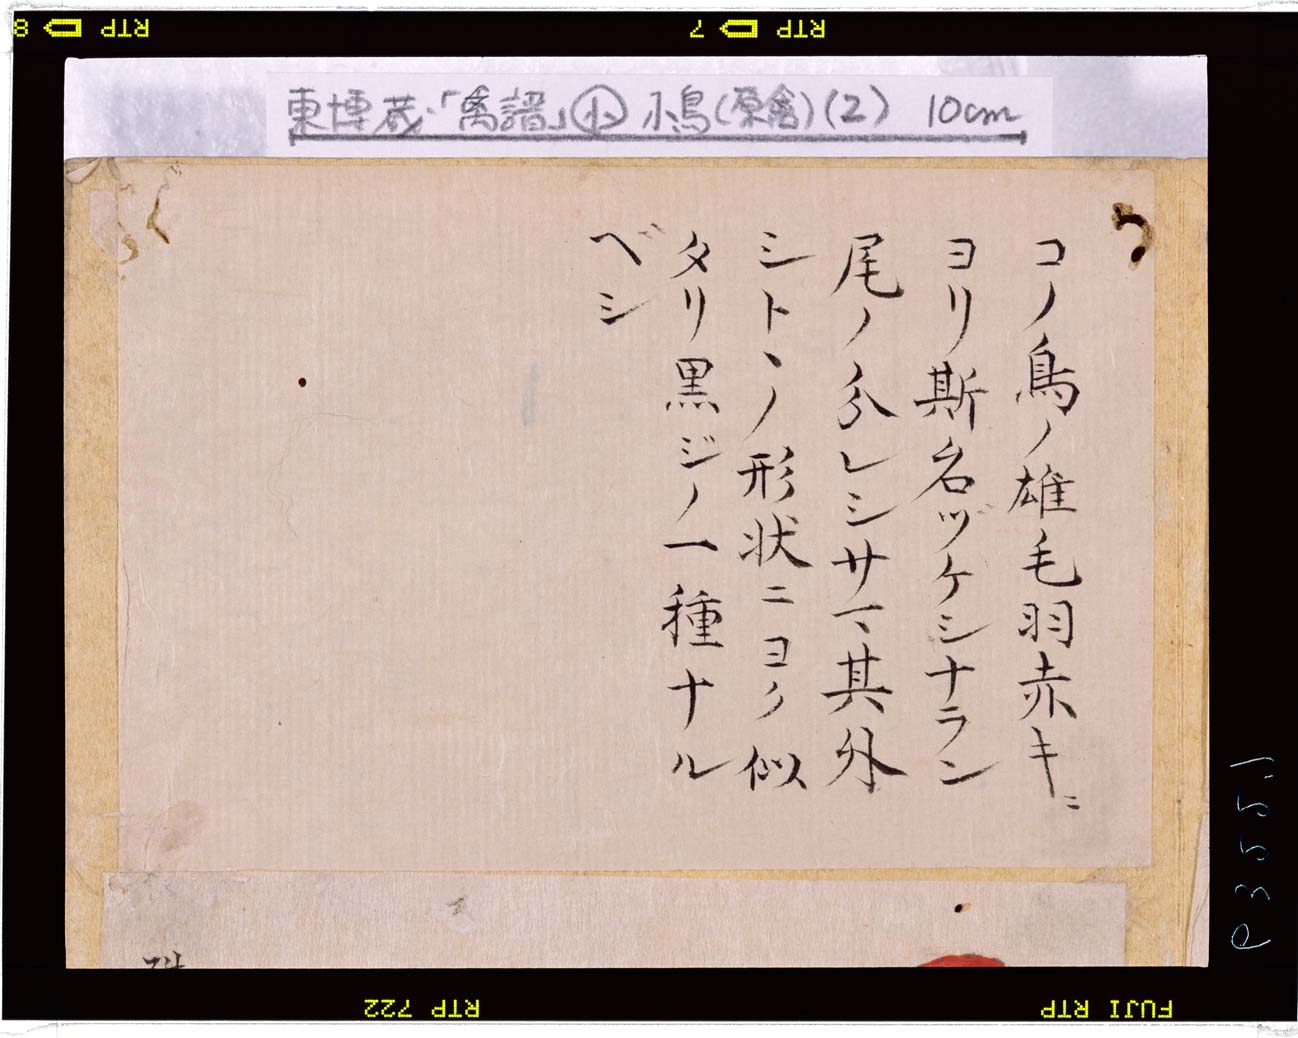 8 RTP
7 RTP
東博蔵「禽譜」小 小鳥(原禽)(2) 10cm
コノ鳥ノ雄毛羽赤キニ
ヨリ斯名ヅケシナラン
尾ノ分レシサマ其外
シトヽノ形状ニヨク似
タリ黒ジノ一種ナル
ベシ
P355.1
RTP 722
FUJI RTP